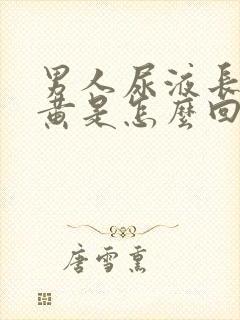 男人尿液長
黃是怎麼回
唐雪熏